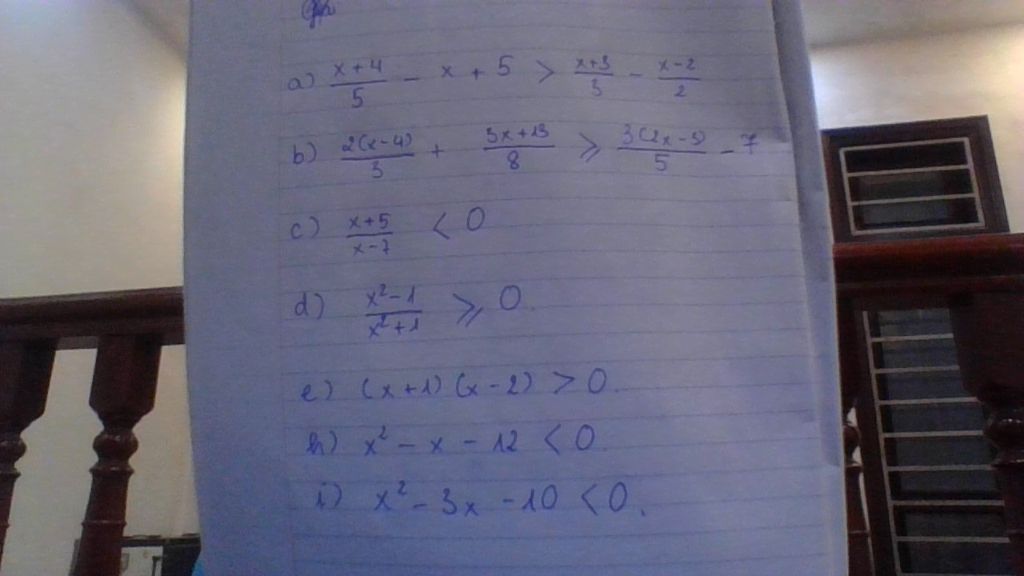 a) \frac{x+4}{5} - x + 5 > \frac{x+3}{3} - \frac{x-2}{2}
b) \frac{2(x-4)}{3} + \frac{3x+13}{8} ⩾ \frac{3(2x-3)}{5} - 7
c) \frac{x+5}{x-7} < 0
d) \frac{x²-1}{x²+1} ⩾ 0.
e) (x+1)(x-2) > 0.
h) x² - x - 12 < 0.
i) x² - 3x - 10 < 0.